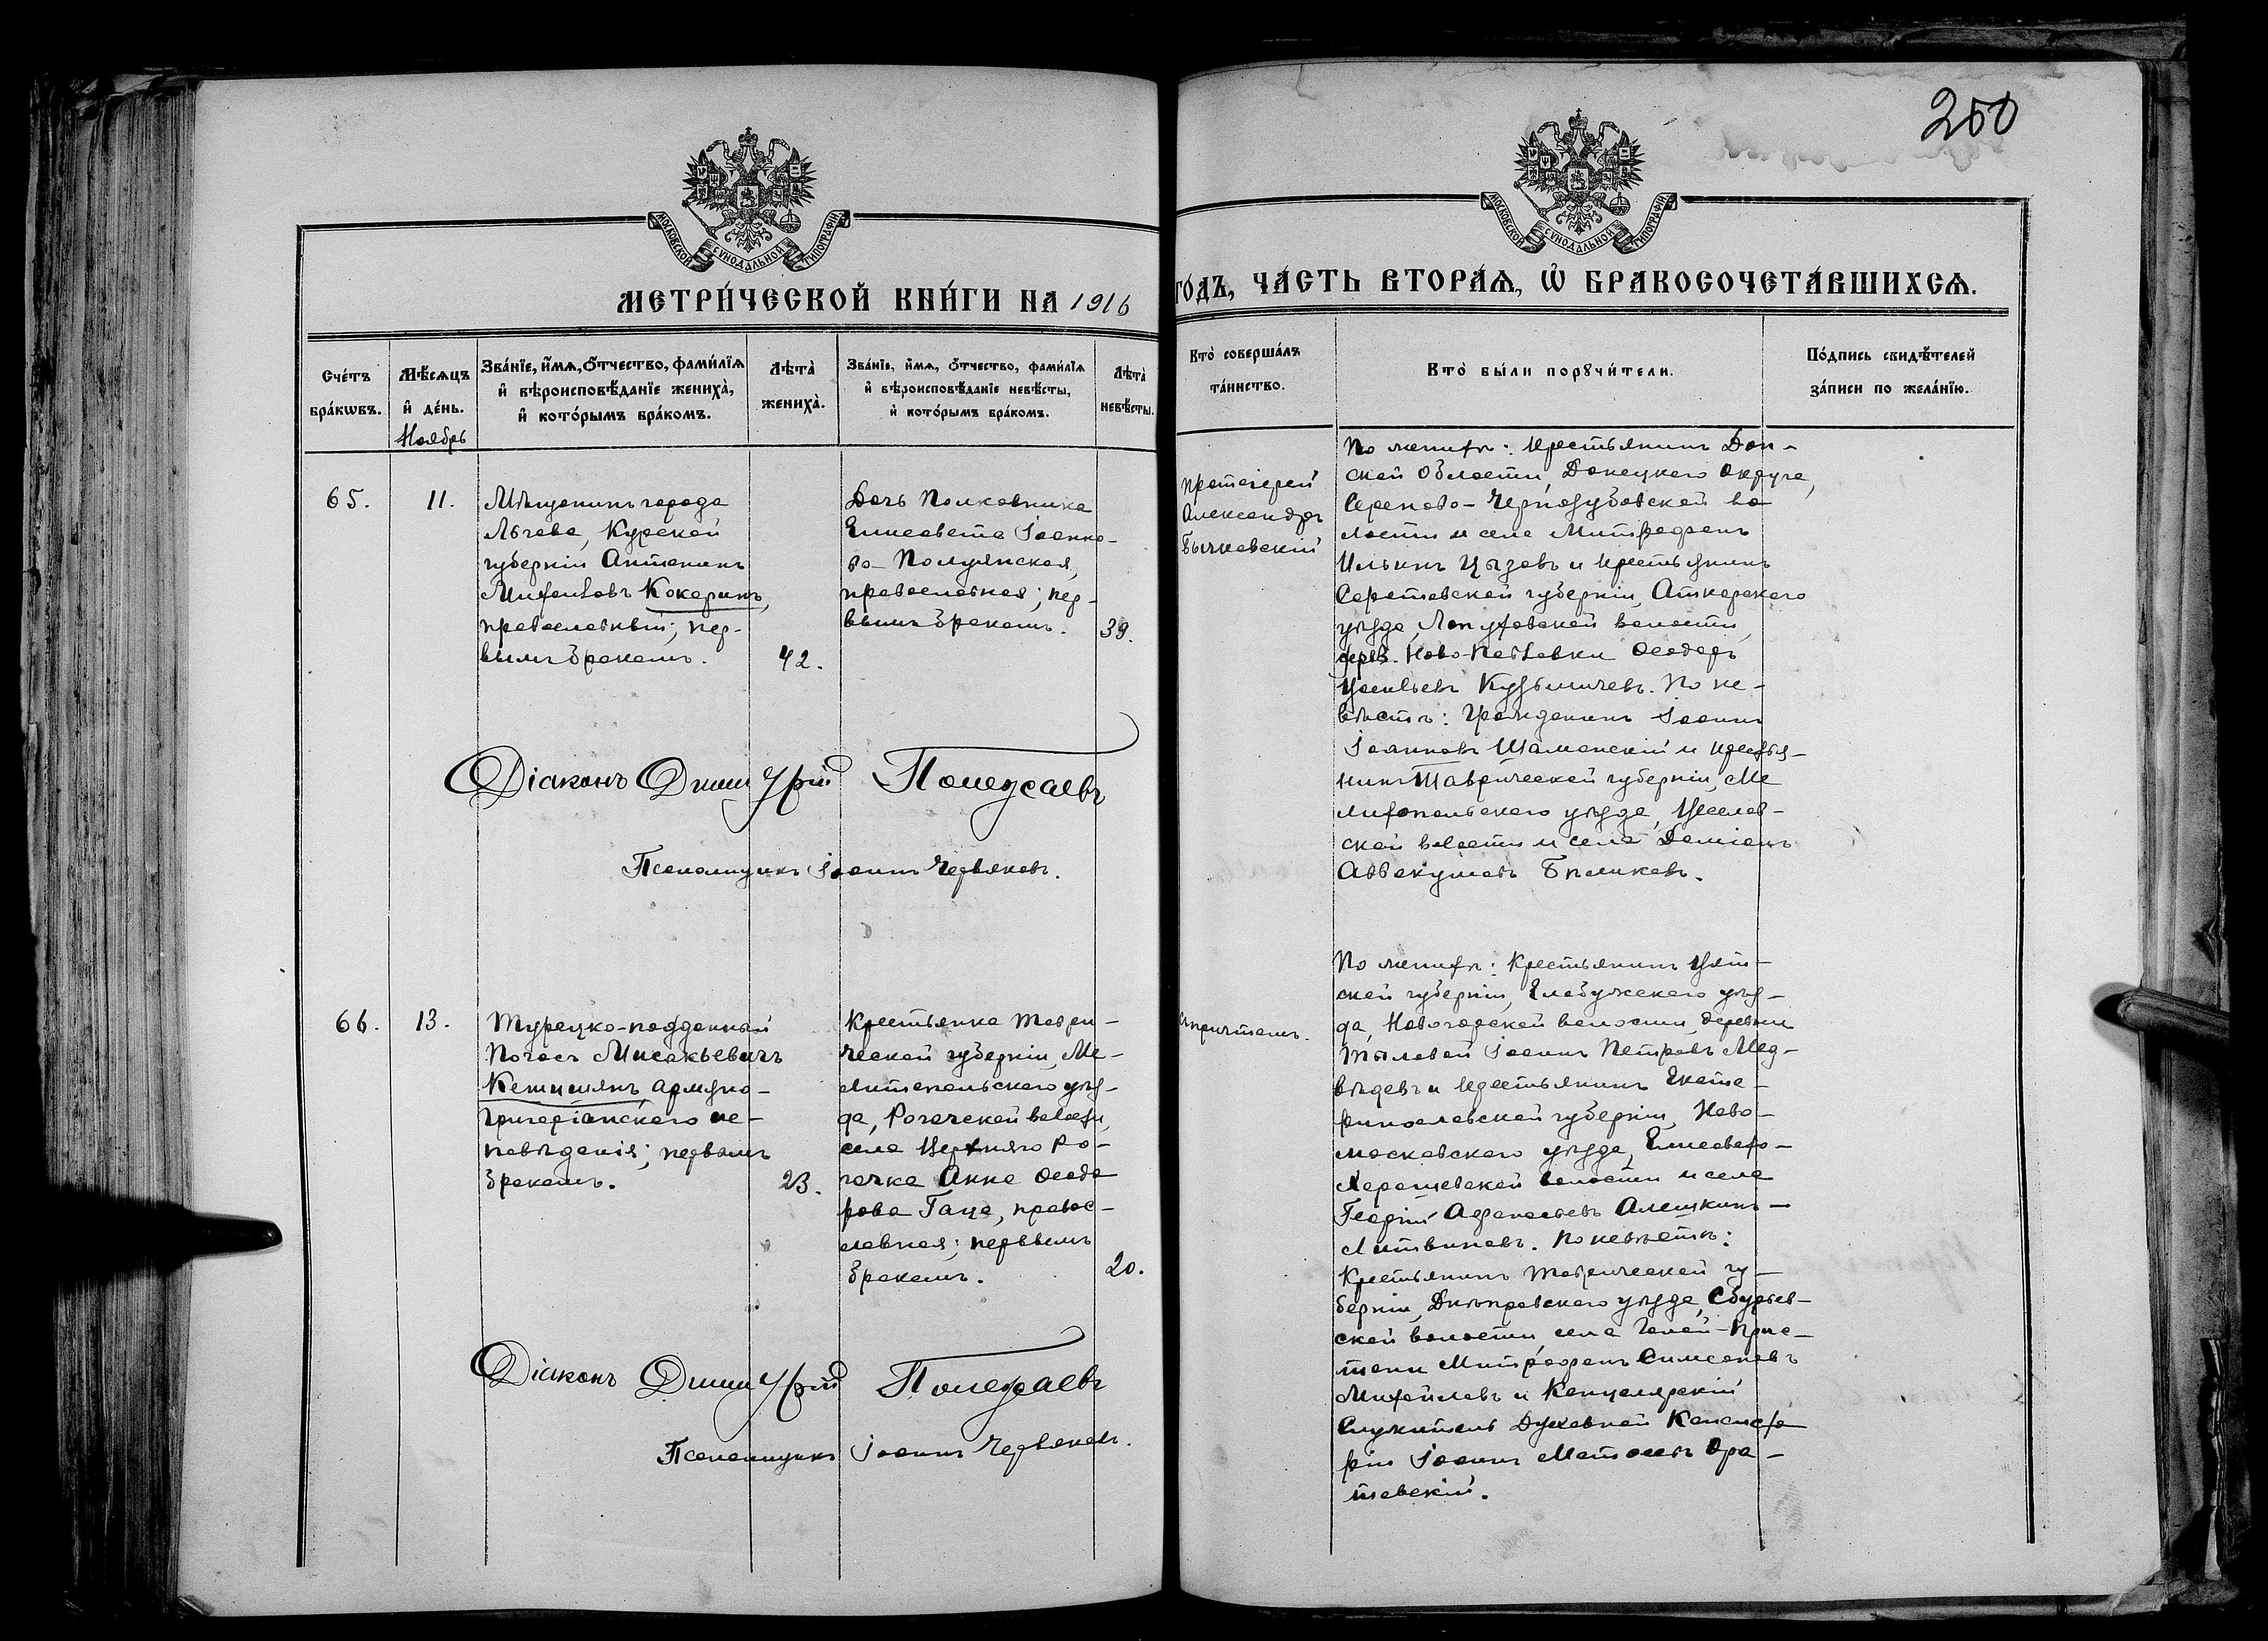 250
МОСКОВСКОЙ СУНОДАЛЬНОЙ ТИПОГРАФІИ
МОСКОВСКОЙ СУНОДАЛЬНОЙ ТИПОГРАФІИ
МЕТРИ́ЧЕСКОЙ КНИ́ГИ НА 1916
ГО́ДЪ, ЧА́СТЬ ВТОРА́Ѧ, Ѽ БРАКОСОЧЕТА́ВШИХСѦ.
Сче́тъ бра́кѡвъ.
Мѣ́сѧцъ и҆ де́нь.
Ноябрь
Зва́нїе, и҆́мѧ, ѻ҆́тчество, фами́лїѧ
и҆ вѣроисповѣ́данїе жениха̀,
и҆ кото́рымъ бра́комъ.
Лѣта̀ жениха̀.
Зва́нїе, и҆́мѧ, ѻ҆́тчество, фами́лїѧ
и҆ вѣроисповѣ́данїе невѣ́сты,
и҆ кото́рымъ бра́комъ.
Лѣта̀ невѣ́сты.
Кто̀ соверша́лъ
та́инство.
Кто̀ бы́ли порꙋчи́тели.
По́дпись свидѣ́телей
за́писи по жела́нїю.
65.
11.
Мѣщанинъ города
Льгова, Курской
губерніи Антонинъ
Михаиловъ Кокоринъ,
православный; пер-
вымъ бракомъ.
42.
Дочь Полковника
Елисавета Іоанно-
ва Полуянская,
православная; пер-
вымъ бракомъ.
39.
Протоіерей
Александръ
Бычковскій
По женихѣ: Крестьянинъ Дон-
ской Области, Донецкаго Округа,
во
лости и села Митрофанъ
Ильинъ Цызовъ и крестьянинъ
Саратовской губерніи, Аткарскаго
уѣзда, Лопуховской волости,
дерев. Ново-Павловки Ѳеодоръ
Васильевъ Кузьмичевъ. По не-
вѣстѣ: Гражданинъ Іоаннъ
Іоанновъ Шаманскій и крестья-
нинъ Таврической губерніи, Ме
литопольскаго уѣзда,
ской волости и села Даміанъ
Аввакумовъ Бѣликовъ.
Діаконъ Димитрій Полежаевъ
Псаломщикъ Іоаннъ Червяковъ.
66.
13.
Турецко-подданный
Погосъ Мисакьевичъ
Кешишянъ, армяно-
григоріанскаго ис-
повѣданія; первымъ
бракомъ.
23.
Крестьянка Таври-
ческой губерніи, Ме-
литопольскаго уѣз-
да, Рогачской волости,
села Верхняго Ро-
гачка Анна Ѳеодо
рова Гаца, правос-
лавная; первымъ
бракомъ.
20.
съ причтомъ.
По женихѣ: Крестьянинъ Вят-
ской губерніи, Елабужскаго уѣз-
да, Новогорской волости, деревни
Тыловой Іоаннъ Петровъ Мед-
вѣдевъ и Крестьянинъ Екате-
ринославской губерніи, Ново-
московскаго уѣзда, Елисавето-
Хорошевской волости и села
Георгій Аѳанасьевъ Алешкинъ-
Литвиновъ. По невѣстѣ:
Крестьянинъ Таврической гу-
берніи, Днѣпровскаго уѣзда, Сбурьев-
ской волости, села Голой-Прис-
тани Митрофанъ Симеоновъ
Михайловъ и Канцелярскій
служитель Духовной Консисто
ріи Іоаннъ Ора-
товскій.
Діаконъ Димитрій Полежаевъ
Псаломщикъ Іоаннъ Червяковъ.